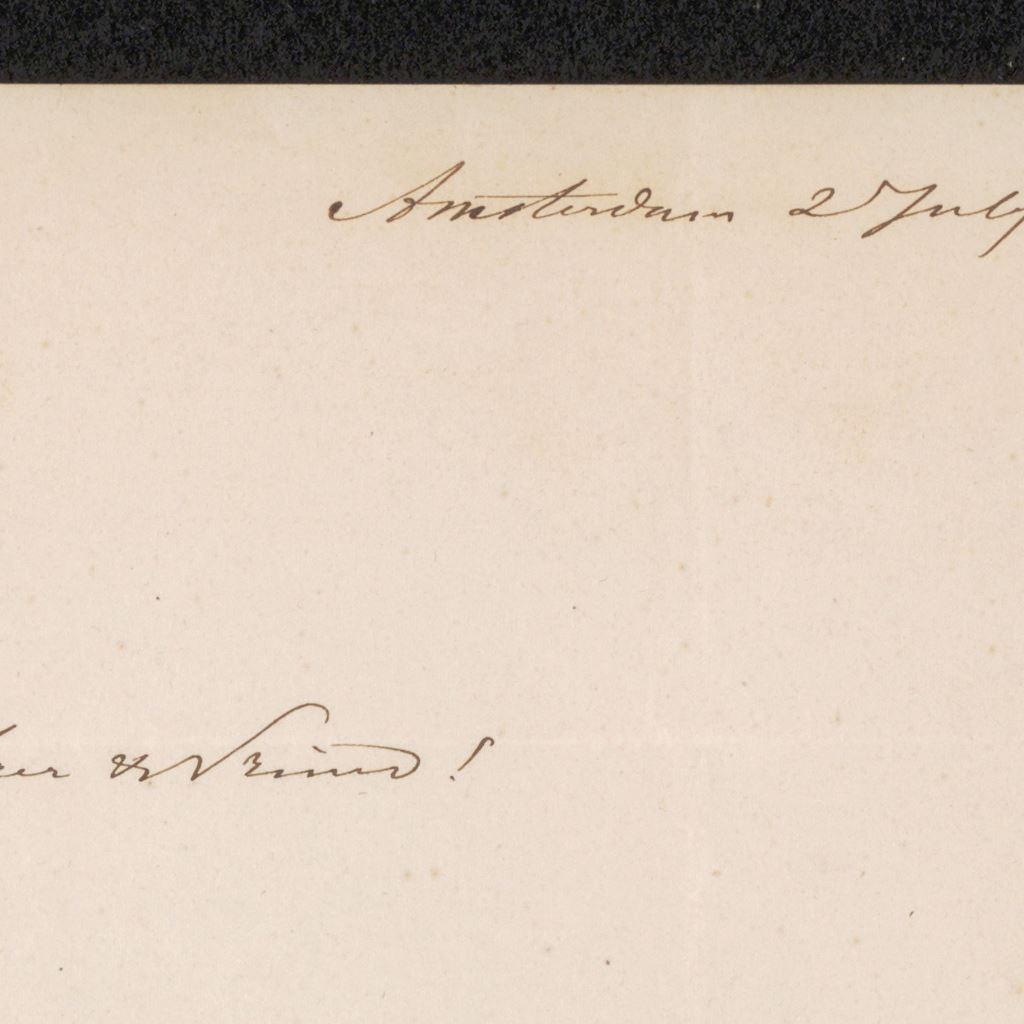 Amsterdam 2 July
& Vriend!